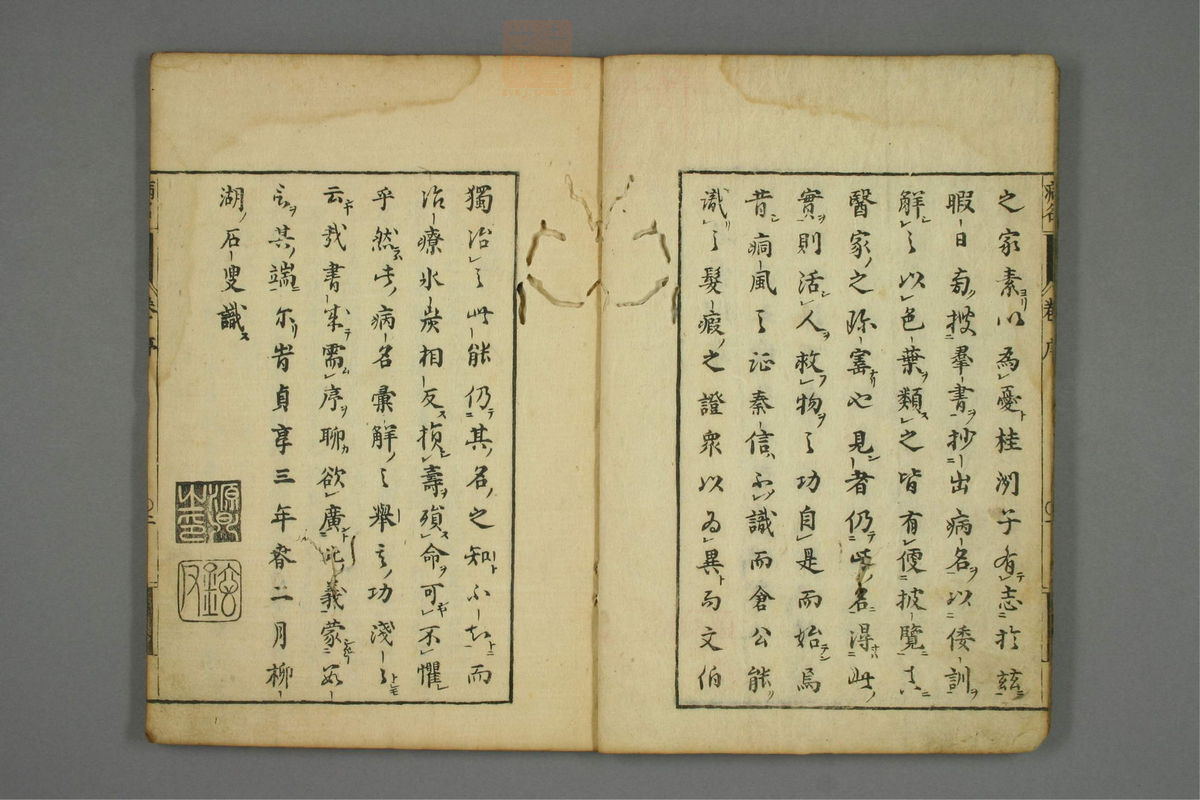 之家素以為憂桂洲子有志於茲
暇日旁捜羣書抄出病名以倭訓
解之以色葉類之皆有便披覽
醫家之珎寳也見者仍此名得此
實則活人救物之功自是而始焉
昔痌風之证秦信不識而倉公能
識之髮瘕之證衆以為異而文伯
獨治之此能仍其名之知不知而
治療氷炭相反損壽殞命可不懼
乎然此病名彙解之舉其功淺々
云哉書成需序聊欲廣此義蒙
言其端尔旹貞享三年春二月柳
湖石叟識